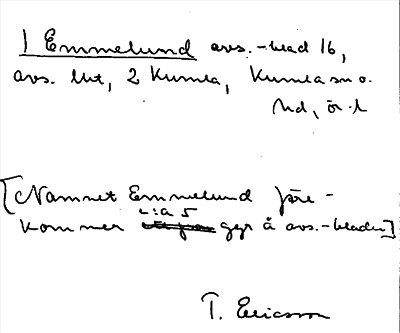 1 Emmelund avs.-blad 16,
avs. Utt, 2 Kumla, Kumla sn o.
hd, ör. l
[Namnet Emmelund före-
L:a 5
kommer ggr å avs.-bladen]
T. Ericsson